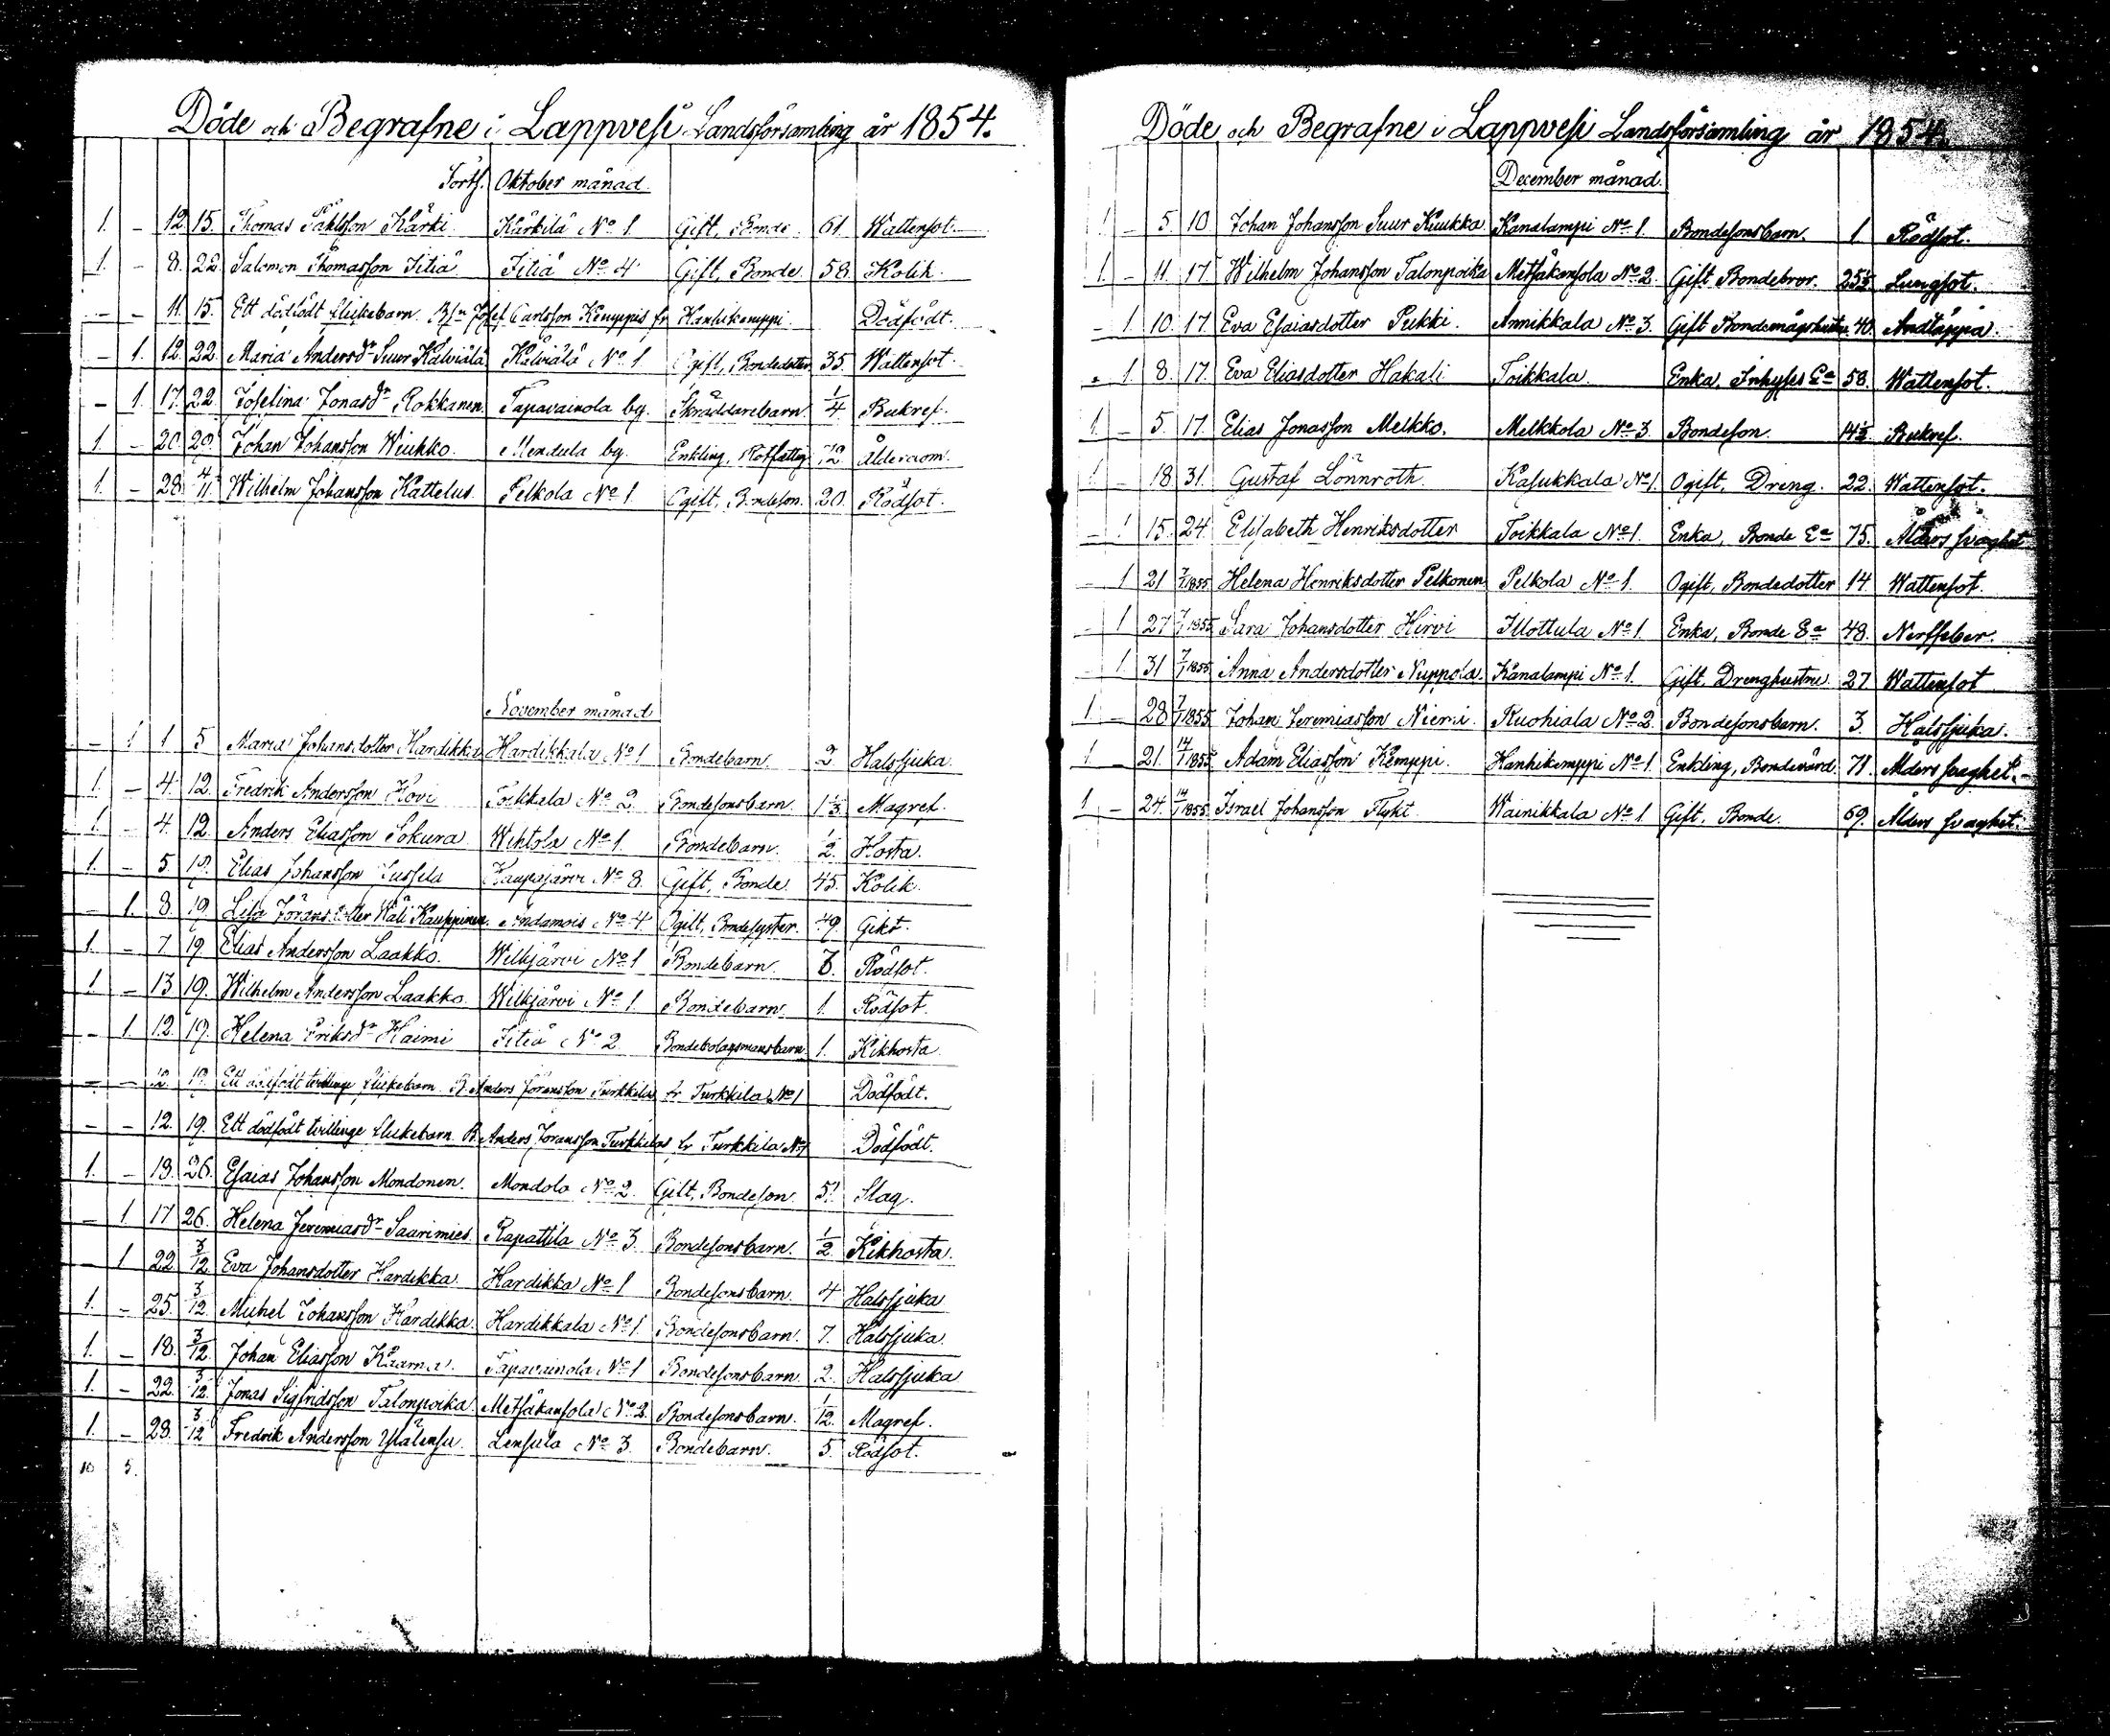 Döde och Begrafne i Lappvesi Landsförsamling år 1854.
Forts. Oktober månad.
1. – 12. 15. Thomas Påhlsson Kärki Kärkilä No 1 Gift, Bonde 61. Wattensot.
1. – 8. 22. Salomon Thomasson Iitiä Iitiä No 4 Gift, Bonde. 58. Kolik.
– – 11. 15. Ett dödfödt flickebarn. Josef Carlsson Kemppis fr Hanhikemppi. Dödfödt.
– 1. 12. 22. Maria Andersdr Suur Kälviälä Kälviälä No 1 Ogift, Bondedotter 35. Wattensot.
– 1. 17. 22. Josefina Jonasdr Rokkanen Tapavainola by. Skräddarebarn. 1/4. Bukref.
1. – 20. 29. Johan Johansson Wiukko. Hendula by. Enkling, Rotfattig 72. Ålderdom.
1. – 28. 4/11. Wilhelm Johansson Kattelus. Pelkola No 1. Ogift, Bondeson. 20. Rödsot.
November månad
– 1 1 5 Maria Johansdotter Hardikka Hardikkala No 1 Bondebarn. 2 Halssjuka
1. – 4. 12. Fredrik Andersson Hovi Toikkala No 2. Bondesonsbarn. 1 1/3. Magref.
1. – 4. 12. Anders Eliasson Sokura Wiktola No 1. Bondebarn. 1/2. Hosta.
1. – 5. 19. Elias Johansson Kaupsjärvi No 8. Gift, Bonde. 45. Kolik.
– 1. 8. 19. Lisa Göransdotter Wäli Kauppinen. No 4. Ogift, Bondesyster. 49. Gikt.
1. – 7. 19. Elias Andersson Laakko. Wilkjärvi No 1 Bondebarn. 7. Rödsot.
1. – 13 19. Wilhelm Andersson Laakko. Wilkjärvi No 1. Bondebarn. 1. Rödsot.
– 1. 12. 19. Helena Eriksdr Haimi Iitiä No 2. Bondebolagsmansbarn 1. Kikhosta.
– – 12. 19. Ett dödfödt tvillinge flickebarn. B. Anders Göransson Turkkilas fr Turkkila No 1 Dödfödt.
– – 12. 19. Ett dödfödt tvillinge flickebarn. B. Anders Göransson Turkkilas fr Turkkila No 1 Dödfödt.
1. – 13. 26. Esaias Johansson Mondonen. Mondola No 2. Gift, Bondeson. 51 Slag.
– 1. 17 26. Helena Jeremiasdr Saarimies. Rapattila No 3. Bondesonsbarn. 1/2. Kikhosta.
– 1 22 3/12. Eva Johansdotter Hardikka. Hardikka No 1 Bondesonsbarn. 4 Halssjuka
1. – 25. 3/12. Michel Johansson Hardikka. Hardikkala No 1. Bondesonsbarn. 7. Halssjuka.
1. – 18. 3/12. Johan Eliasson Kaarna. Tapavainola No 1 Bondesonsbarn. 2. Halssjuka
1. – 22. 3/12. Jonas Sigfridsson Talonpoika. Metsäkansola No 2. Bondesonsbarn. 1/12. Magref.
1. – 28. 3/12 Fredrik Andersson Ylälensu. Lensula No 3. Bondebarn. 5. Rödsot.
10 5.
Döde och Begrafne i Lappvesi Landsförsamling år 1854.
December månad.
1. – 5 10. Johan Johansson Suur Kuukka Kanalampi No 1. Bondesonsbarn. 1. Rödsot.
1. – 11. 17. Wilhelm Johansson Talonpoika Metsäkansola No 2. Gift Bondebror. 25 1/2. Lungsot.
– 1 10. 17. Eva Esaiasdotter Pukki. Annikkala No 3. Gift Bondemågshustru 40. Andtäppa.
– 1. 8. 17. Eva Eliasdotter Hakali Toikkala. Enka, Inhyses Ea 58. Wattensot.
1. – 5. 17. Elias Jonasson Melkko. Melkkola No 3. Bondeson. 14 1/2. Bukref.
1 – 18 31. Gustaf Lönnroth. Kasukkala No 1. Ogift, Dreng. 22. Wattensot.
– 1 15. 24. Elisabeth Henriksdotter Toikkala No 1. Enka, Bonde Ea 75. Ålders svaghet
– 1 21 7/1 1855. Helena Henriksdotter Pelkonen Pelkola No 1. Ogift, Bondedotter 14. Wattensot.
– 1 27 7/1 1855 Sara Johansdotter Hirvi Ilottula No 1. Enka, Bonde Ea 48. Nerffeber.
– 1. 31 7/1 1855 Anna Andersdotter Nuppola. Kanalampi No 1. Gift, Drenghustru 27. Wattensot
1 – 28 7/1 1855. Johan Jeremiasson Niemi. Kuohiala No 2. Bondesonsbarn. 3. Halssjuka.
1 – 21. 14/1 1855. Adam Eliasson Kemppi. Hanhikemppi No 1. Enkling, Bondevärd 71. Ålders svaghet.
1 – 24. 14/1 1855. Israel Johansson Flykt. Wainikkala No 1 Gift, Bonde. 69. Ålders svaghet.